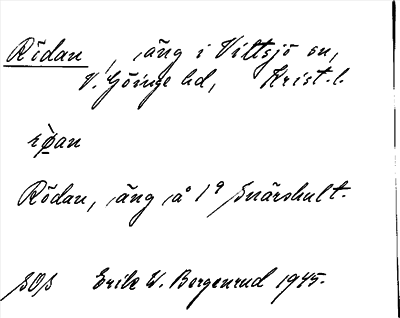 Rödan, äng i Vittsjö sn,
V. Göinge hd, Krist. l.
Rödan, äng å 1⁹ Snärshult.
SOS Erik W. Bergenrud 1945.